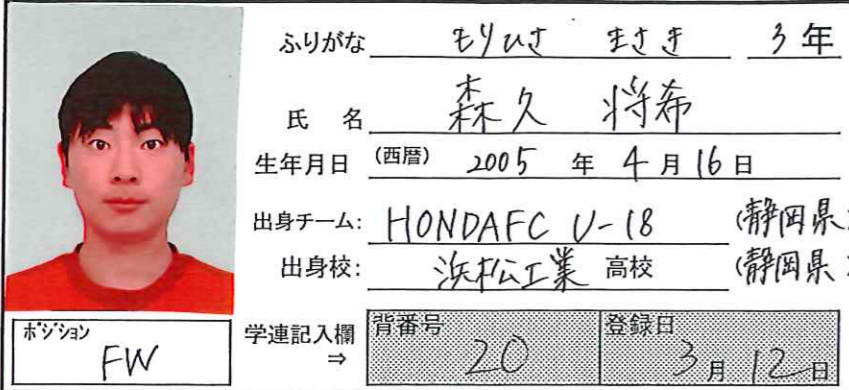 ふりがな もりひさ まさき 3年
氏名 森久 将希
生年月日 (西暦) 2005 年 4月 16日
出身チーム: HONDAFC U-18 (静岡県)
出身校: 浜松工業 高校 (静岡県)
ポジション
FW
学連記入欄
⇒
背番号
20
登録日
3月 12日